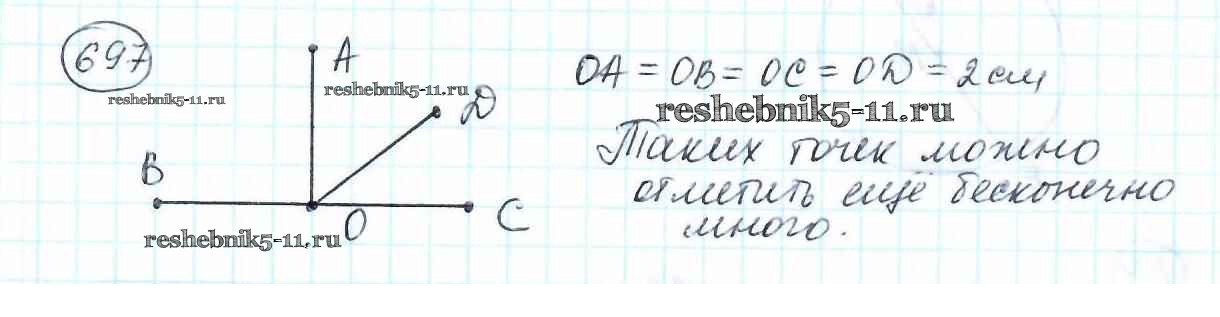 697
reshebnik5-11.ru
A
reshebnik5-11.ru
D
B
O
C
reshebnik5-11.ru
OA = OB = OC = OD = 2 см
reshebnik5-11.ru
Таких точек можно
отметить ещё бесконечно
много.